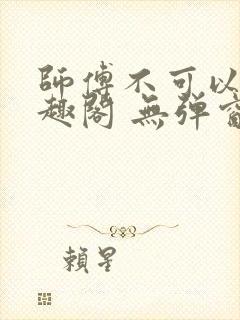 師傅不可以
趣閣 無彈窗
賴星